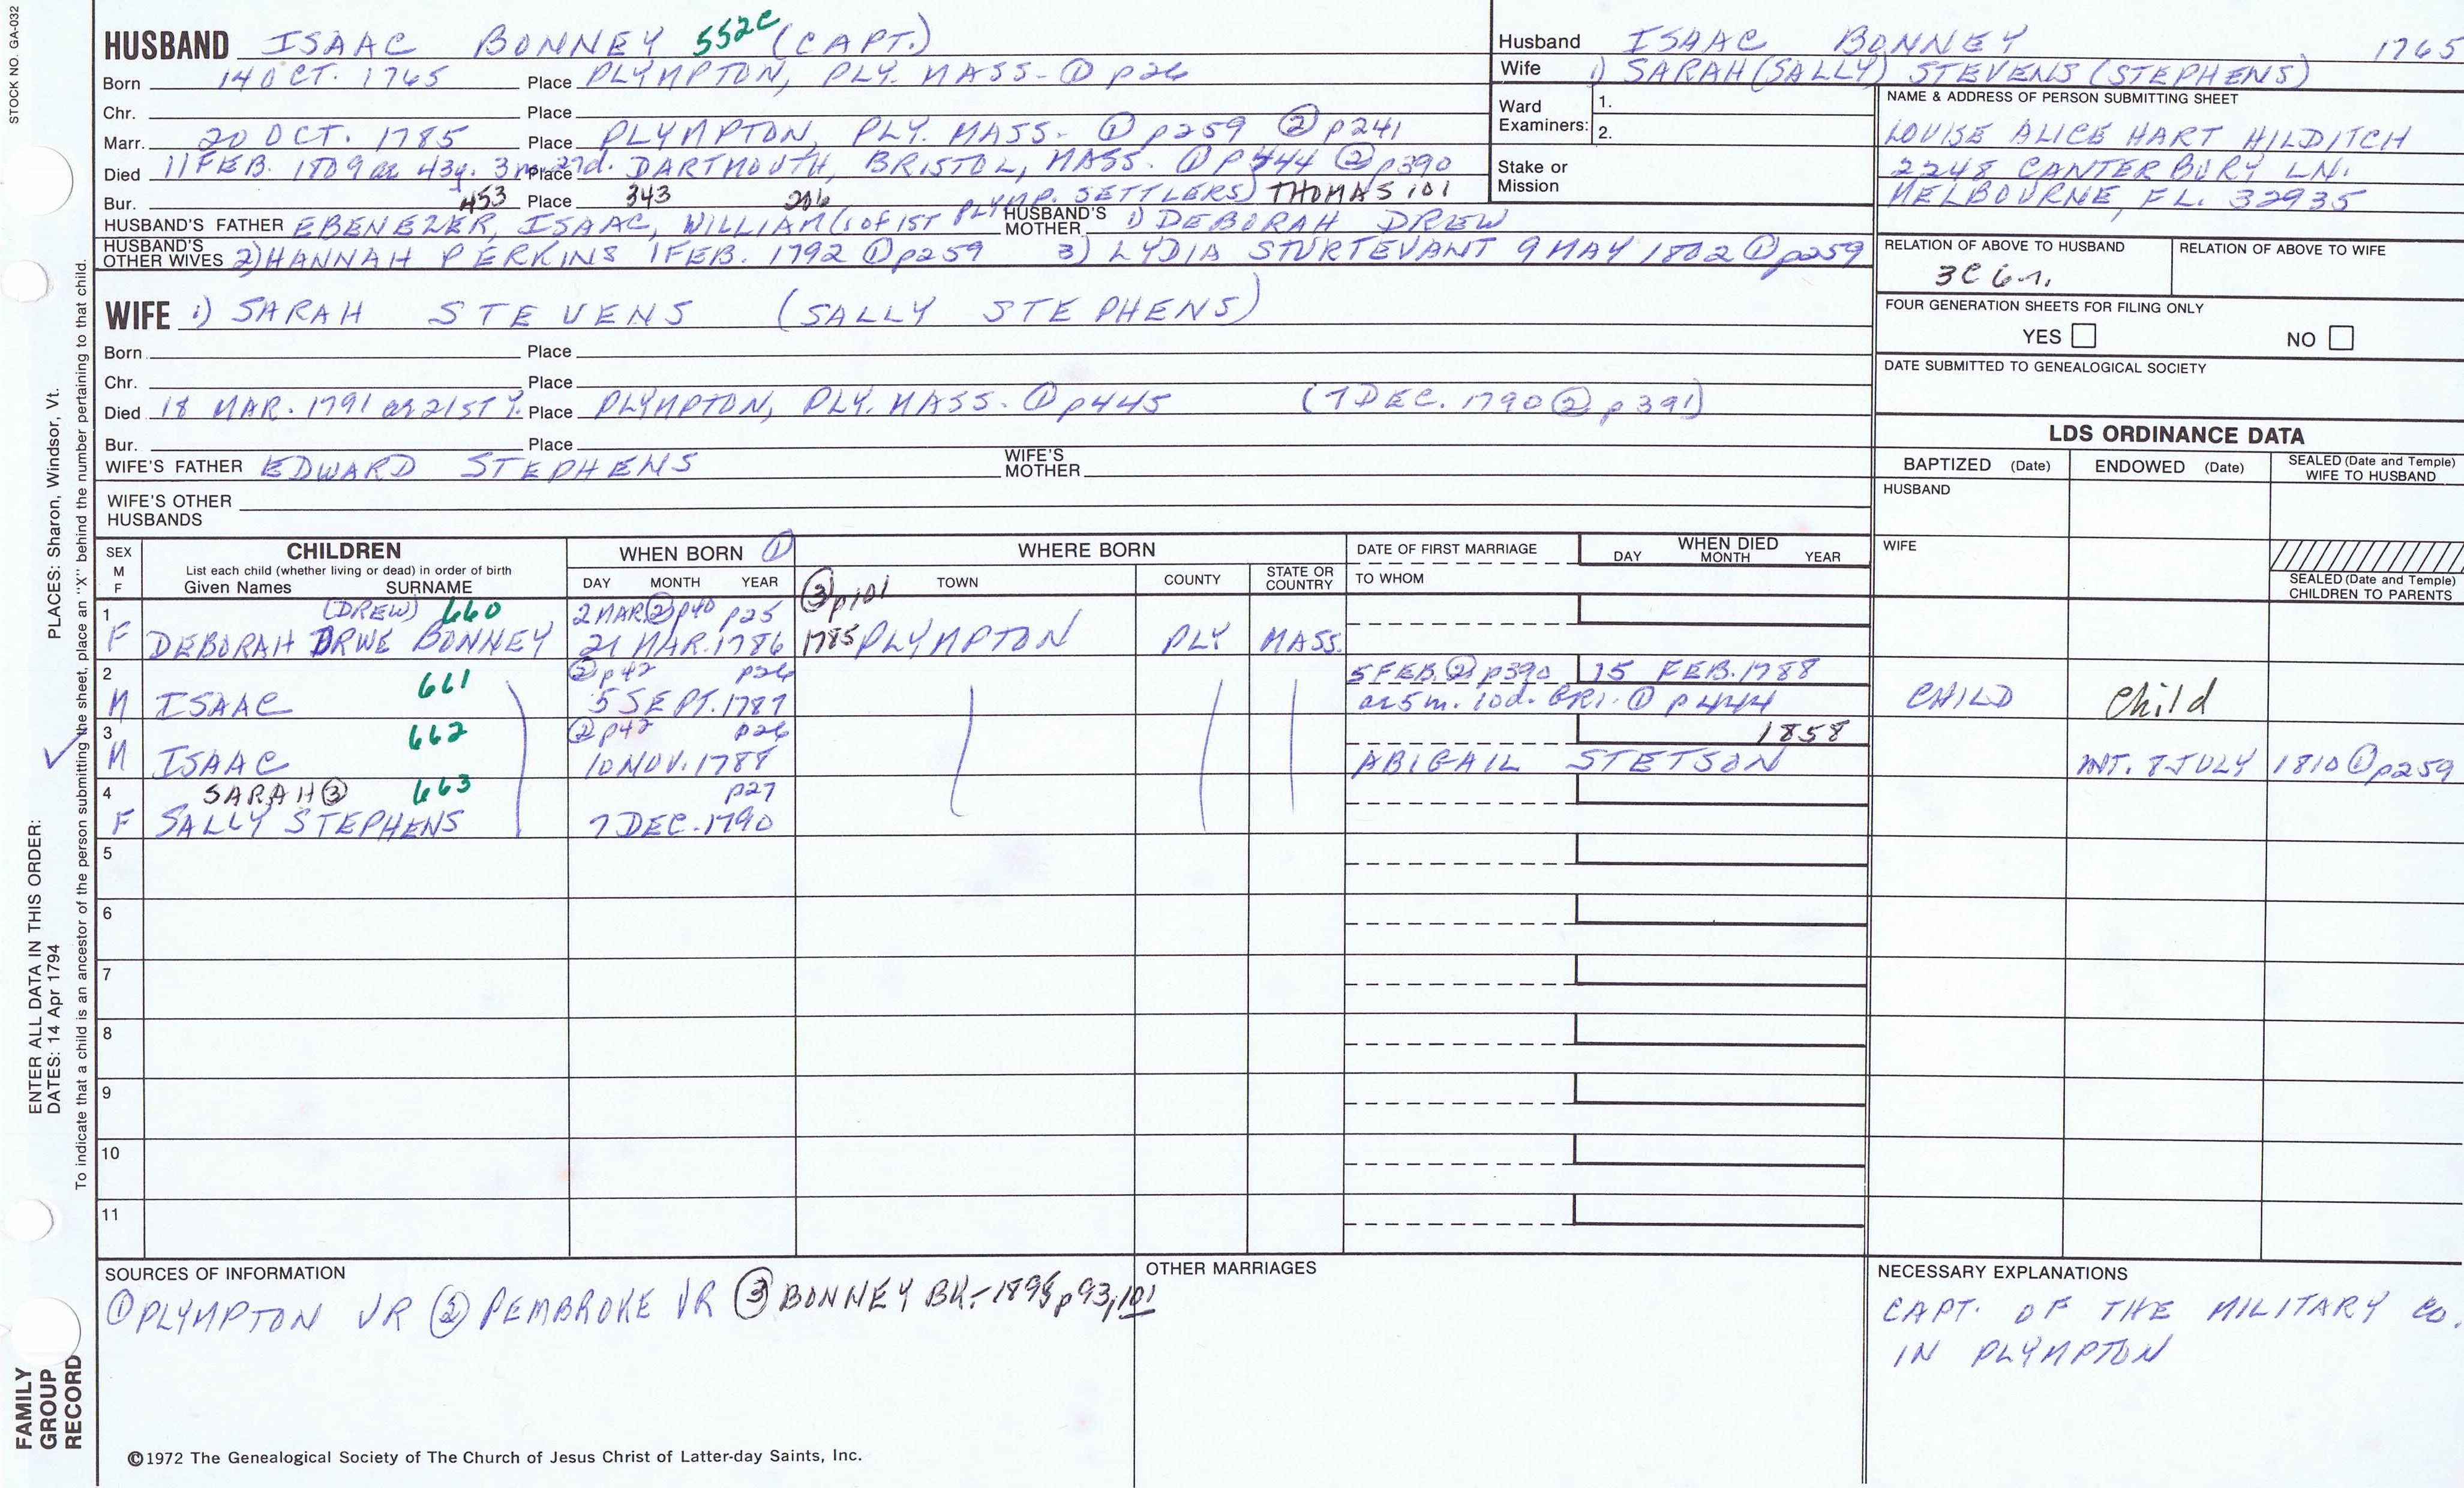 STOCK NO. GA-032
HUSBAND ISAAC BONNEY 552c (CAPT.)
Born 14 OCT. 1765 Place PLYMPTON, PLY. MASS- ① p26
Chr. Place
Marr. 20 OCT. 1785 Place PLYMPTON, PLY. MASS- ① p259 ② p241
Died 11 FEB. 1809 ae 43y. 3m. 27d. Place DARTMOUTH, BRISTOL, MASS. ① P444 ② p390
Bur. 453 Place 343 206 PLYMP. SETTLERS) THOMAS 101
HUSBAND'S FATHER EBENEZER, ISAAC, WILLIAM (1 of 1ST HUSBAND'S MOTHER 1) DEBORAH DREW
HUSBAND'S OTHER WIVES 2) HANNAH PERKINS 1 FEB. 1792 ① p259 3) LYDIA STURTEVANT 9 MAY 1802 ① p259
WIFE 1) SARAH STEVENS (SALLY STEPHENS)
Born Place
Chr. Place
Died 18 MAR. 1791 ae 21ST Y. Place PLYMPTON, PLY. MASS- ① p445 (7 DEC. 1790 ② p391)
Bur. Place
WIFE'S FATHER EDWARD STEPHENS WIFE'S MOTHER
WIFE'S OTHER HUSBANDS
Husband ISAAC BONNEY 1765
Wife 1) SARAH (SALLY) STEVENS (STEPHENS)
Ward Examiners: 1.
2.
Stake or Mission
NAME & ADDRESS OF PERSON SUBMITTING SHEET
LOUISE ALICE HART HILDITCH
2248 CANTERBURY LN.
MELBOURNE, FL. 32935
RELATION OF ABOVE TO HUSBAND RELATION OF ABOVE TO WIFE
3C 6r.
FOUR GENERATION SHEETS FOR FILING ONLY
YES NO
DATE SUBMITTED TO GENEALOGICAL SOCIETY
LDS ORDINANCE DATA
BAPTIZED (Date) ENDOWED (Date) SEALED (Date and Temple) WIFE TO HUSBAND
HUSBAND
WIFE
SEALED (Date and Temple) CHILDREN TO PARENTS
SEX M F
CHILDREN
List each child (whether living or dead) in order of birth
Given Names SURNAME
WHEN BORN ①
DAY MONTH YEAR
WHERE BORN
③ p101 TOWN COUNTY STATE OR COUNTRY
DATE OF FIRST MARRIAGE
TO WHOM
WHEN DIED
DAY MONTH YEAR
1 (DREW) 660 2 MAR ② p40 p25
F DEBORAH DRWE BONNEY 21 MAR. 1786 1785 PLYMPTON PLY MASS.
2 661 ② p42 p26 5 FEB. ② p390 15 FEB. 1788
M ISAAC 5 SEPT. 1787 ae 5 m. 10d. GR1. ① p444 CHILD Child
3 662 ② p42 p26 1858
M ISAAC 10 NOV. 1788 ABIGAIL STETSON INT. 8 JULY 1810 ① p259
4 SARAH ③ 663 p27
F SALLY STEPHENS 7 DEC. 1790
5
6
7
8
9
10
11
SOURCES OF INFORMATION
① PLYMPTON VR ② PEMBROKE VR ③ BONNEY BK.- 1898 p93, 101
OTHER MARRIAGES
NECESSARY EXPLANATIONS
CAPT. OF THE MILITARY CO.
IN PLYMPTON
©1972 The Genealogical Society of The Church of Jesus Christ of Latter-day Saints, Inc.
FAMILY
GROUP
RECORD
ENTER ALL DATA IN THIS ORDER:
DATES: 14 Apr 1794
PLACES: Sharon, Windsor, Vt.
To indicate that a child is an ancestor of the person submitting the sheet, place an "X" behind the number pertaining to that child.